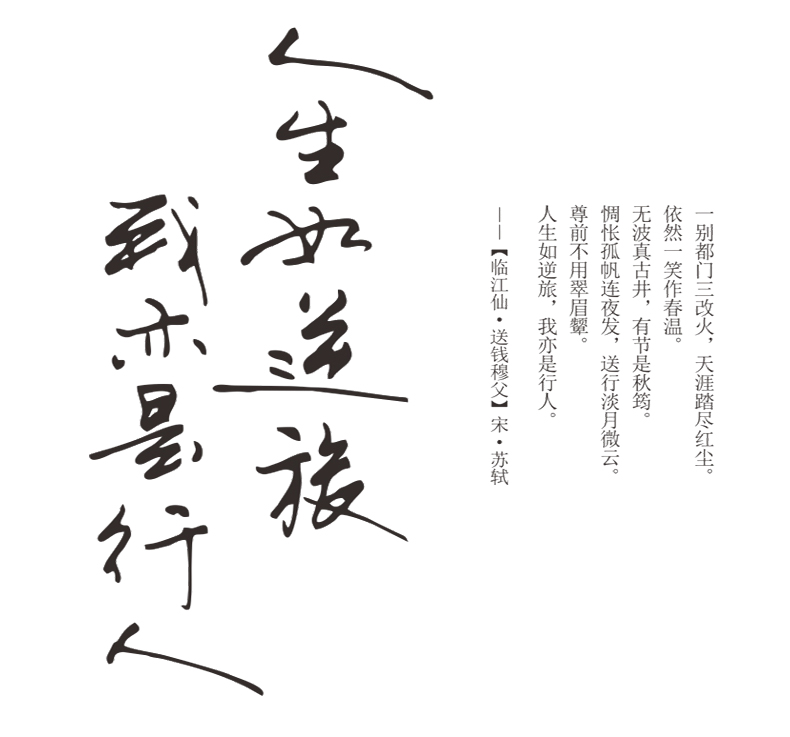 一别都门三改火，天涯踏尽红尘。
依然一笑作春温。
无波真古井，有节是秋筠。
惆怅孤帆连夜发，送行淡月微云。
尊前不用翠眉颦。
人生如逆旅，我亦是行人。
——【临江仙·送钱穆父】宋·苏轼
人生如逆旅
我亦是行人